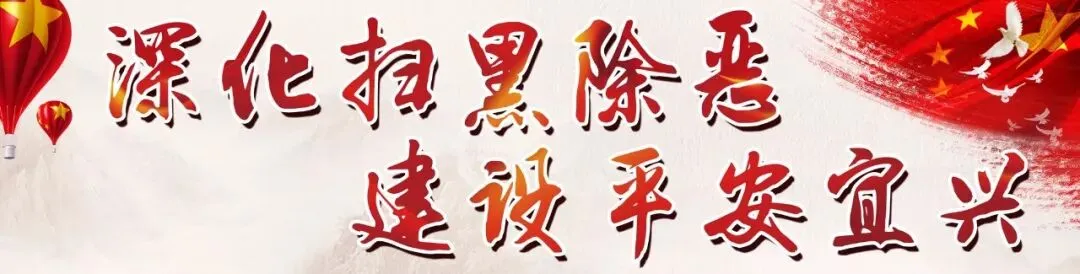 深化扫黑除恶
建设平安宜兴